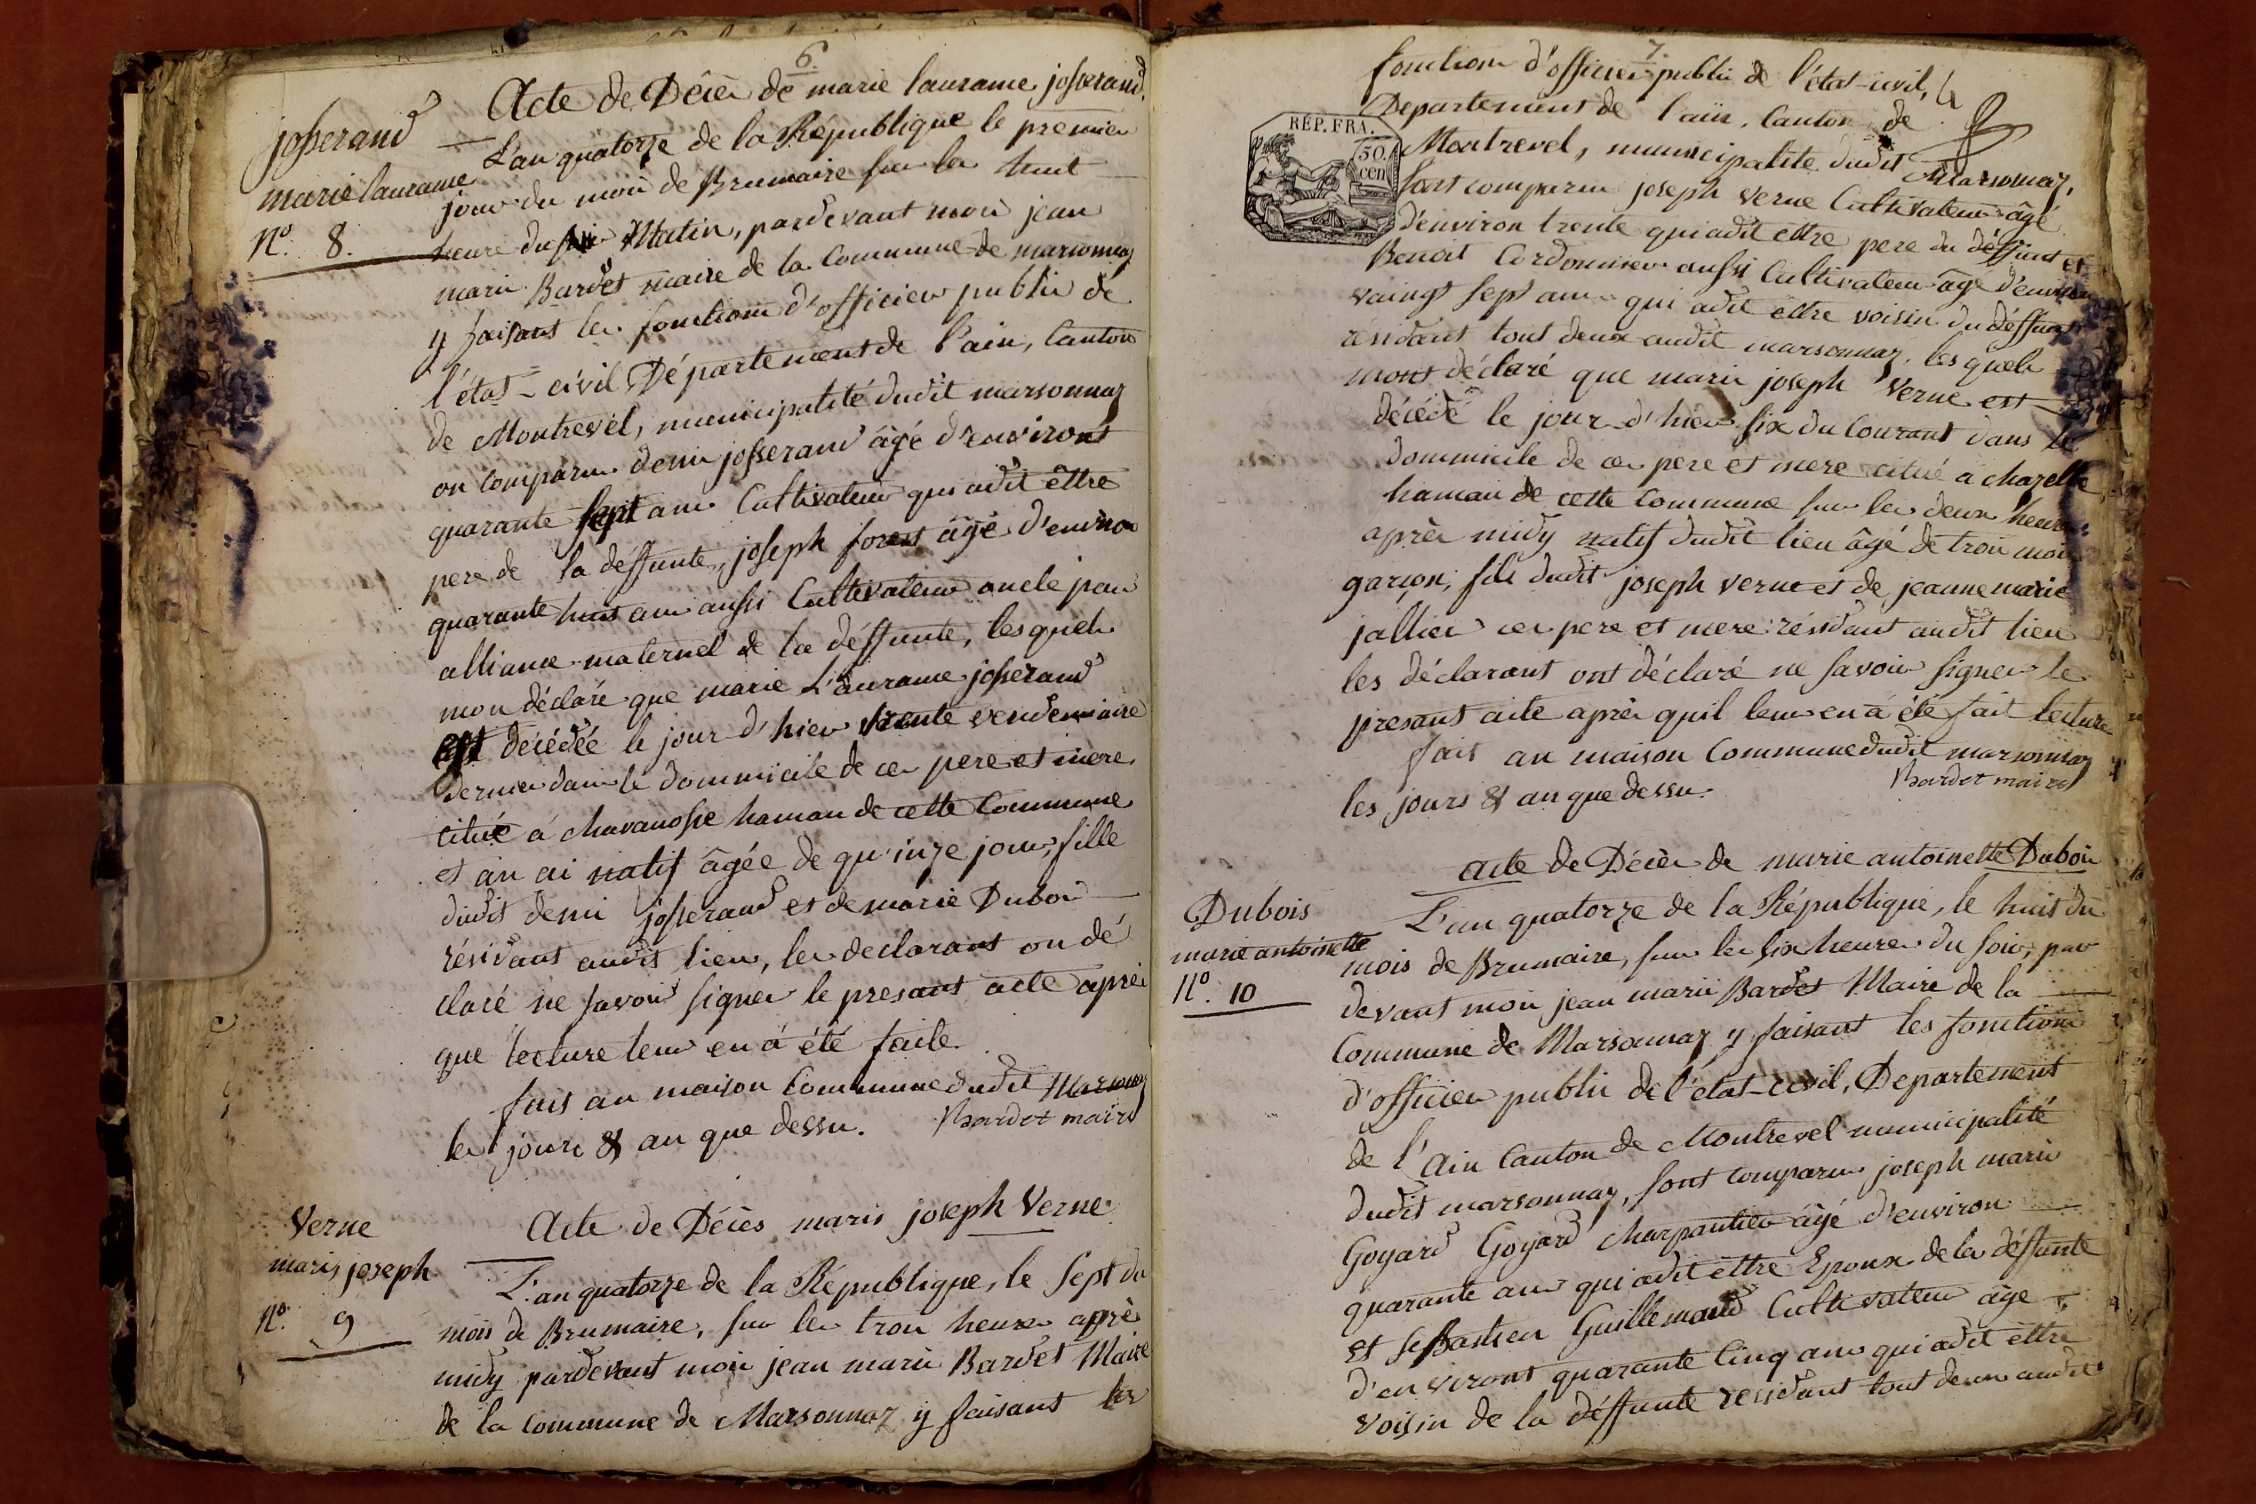 6.
Acte de Décès de marie laurame josserand,
josserand
marie laurame
N.º 8.
L'an quatorze de la République le premier
jour du mois de Brumaire sur les huit
heure du Matin, pardevant moi jean
marie Bardet maire de la Commune de marsonnaz
y faisant les fonctions d'officier public de
l'état-civil Département de l'ain, Canton
de Montrevel, municipalité dudit marsonnaz
on comparu denis josserand âgé d'environt
quarante sept ans Cultivateur qui adit êttre
pere de la déffunte, joseph forest âgé d'environ
quarante huit ans aussi Cultivateur oncle par
alliance maternel de la déffunte, lesquels
mon déclaré que marie L'aurame josserand
est décédée le jour d'hier trente vendemiaire
dernier dans le dommicile de ces pere et mere
citué á Chavanosse hamau de cette Commune
et an ai natif âgée de quinze jour, fille
dudit denis josserand et de marie Dubois
résidant audit lieu, les declarant on dé
claré ne savoir signer le presant acte après
que lecture leur en á été faite.
fait an maison Commune dudit Marsonnaz
les jours & an que dessu. Bardet maire
Verne
marie joseph
N.º 9
Acte de Décès marie joseph Verne
L'an quatorze de la République, le sept du
mois de Brumaire, sur les trois heures après
midy pardevant moi jean marie Bardet Maire
de la Commune de Marsonnaz y faisant les
7.
fonctions d'officier public de l'état-civil,
Departement de l'ain, Canton de
RÉP. FRA.
50.
cen
Montrevel, municipalité dudit Marsonnaz,
sont comparu joseph verne Cultivateur âgé
d'environ trente qui adit êttre pere du déffunt et
Benoit Cordonnier aussi Cultivateur âgé d'environ
vaingt sept ans qui adit êttre voisin du déffunt
résidant tout deux audit marsonnaz, lesquels
mont déclaré que marie joseph Verne est
décédé le jour d'hier six du Courant dans le
dommicile de ces pere et mere citué á Chazelle
hamau de cette Commune sur les deux heures
après midy natif dudit lieu âgé de trois mois
garçon, fils dudit joseph verne et de jeanne marie
jallier ces pere et mere résidant audit lieu
les déclarant ont déclaré ne savoir signer le
presant acte après quil leur en á été fait lecture
fait an maison Commune dudit marsonnaz
les jours & an que dessu. Bardet maire
acte de Décès de marie antoinette Dubois
Dubois
marie antoinette
N.º 10
L'an quatorze de la République, le huit du
mois de Brumaire, sur les six heures du soir, par
devant moi jean marie Bardet Maire de la
Commune de Marsonnaz y faisant les fonctions
d'officier public de l'état-civil, Departement
de l'Ain Canton de Montrevel municipalité
dudit marsonnaz, sont comparu joseph marie
Goyard Goyard Charpantier âgé d'environ
quarante ans qui adit êttre Epoux de la déffunte
et seBastien Guillemaud Cultivateur âgé
d'environt quarante Cinq ans qui adit êttre
voisin de la déffunte résidant tout deux audit